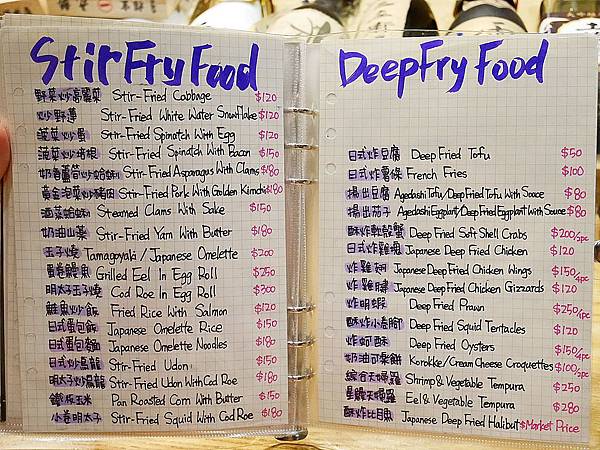 Stir Fry Food
野菜炒高麗菜 Stir-Fried Cabbage $120
炒野蓮 Stir-Fried White Water Snowflake $120
菠菜炒蛋 Stir-Fried Spinatch With Egg $120
菠菜炒培根 Stir-Fried Spinatch With Bacon $150
奶油蘆筍炒蛤蜊 Stir-Fried Asparagus With Clams $180
黃金泡菜炒豬肉 Stir-Fried Pork With Golden Kimchi $180
酒蒸蛤蜊 Steamed Clams With Sake $150
奶油山藥 Stir-Fried Yam With Butter $180
玉子燒 Tamagoyaki / Japanese Omelette $200
蛋卷鰻魚 Grilled Eel In Egg Roll $250
明太子玉子燒 Cod Roe In Egg Roll $300
鮭魚炒飯 Fried Rice With Salmon $120
日式蛋包飯 Japanese Omelette Rice $150
日式蛋包麵 Japanese Omelette Noodles $180
日式炒烏龍 Stir-Fried Udon $150
明太子炒烏龍 Stir-Fried Udon With Cod Roe $180
鐵板玉米 Pan Roasted Corn With Butter $150
小卷明太子 Stir-Fried Squid With Cod Roe $180
Deep Fry Food
日式炸豆腐 Deep Fried Tofu $50
日式炸薯條 French Fries $100
揚出豆腐 Agedashi Tofu/Deep Fried Tofu With Sauce $80
揚出茄子 Agedashi Eggplant/Deep Fried Eggplant With Sauce $80
酥炸軟殼蟹 Deep Fried Soft Shell Crabs $200/1pc
日式炸雞塊 Japanese Deep Fried Chicken $120
炸雞翅 Japanese Deep Fried Chicken Wings $150/4pc
炸雞胗 Japanese Deep Fried Chicken Gizzards $120
炸明蝦 Deep Fried Prawn $250/1pc
酥炸小卷腳 Deep Fried Squid Tentacles $120
炸蚵酥 Deep Fried Oysters $150/4pc
奶油可樂餅 Korokke/Cream Cheese Croquettes $100/3pc
綜合天婦羅 Shrimp & Vegetable Tempura $250
星鰻天婦羅 Eel & Vegetable Tempura $280
酥炸比目魚 Japanese Deep Fried Halibut $Market Price